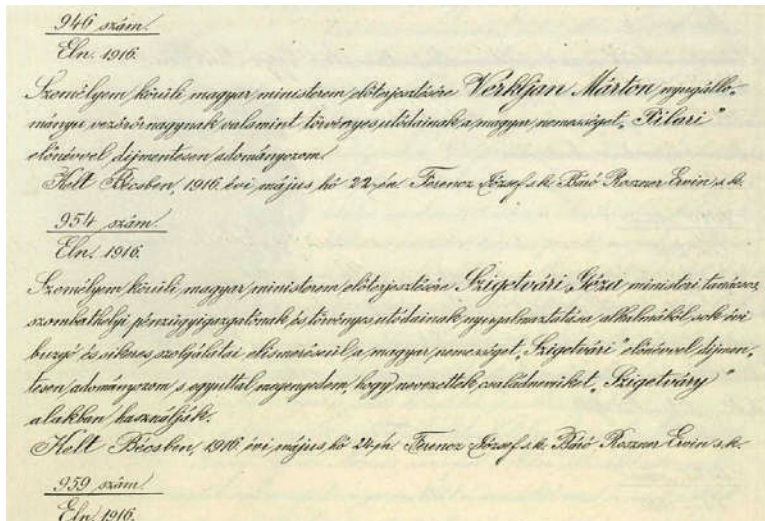 946 szám.
Eln. 1916.
Személyem körüli magyar ministerem előterjesztésére Verkljan Márton nyugállo-
mányú vezérőrnagynak valamint törvényes utódainak a magyar nemességet „Pilari"
előnévvel díjmentesen adományozom.
Kelt Bécsben, 1916. évi május hó 22-én. Ferencz József s.k. Báró Roszner Ervin s.k.
954 szám.
Eln. 1916.
Személyem körüli magyar ministerem előterjesztésére Szigetvári Géza ministeri tanácsos,
szombathelyi pénzügyigazgatónak és törvényes utódainak nyugalmaztatása alkalmából sok évi
buzgó és sikeres szolgálatai elismeréséül a magyar nemességet „Szigetvári" előnévvel díjmen-
tesen adományozom s egyúttal megengedem, hogy nevezettek családnevüket „Szigetváry"
alakban használják.
Kelt Bécsben, 1916. évi május hó 24-én. Ferencz József s.k. Báró Roszner Ervin s.k.
959 szám.
Eln. 1916.